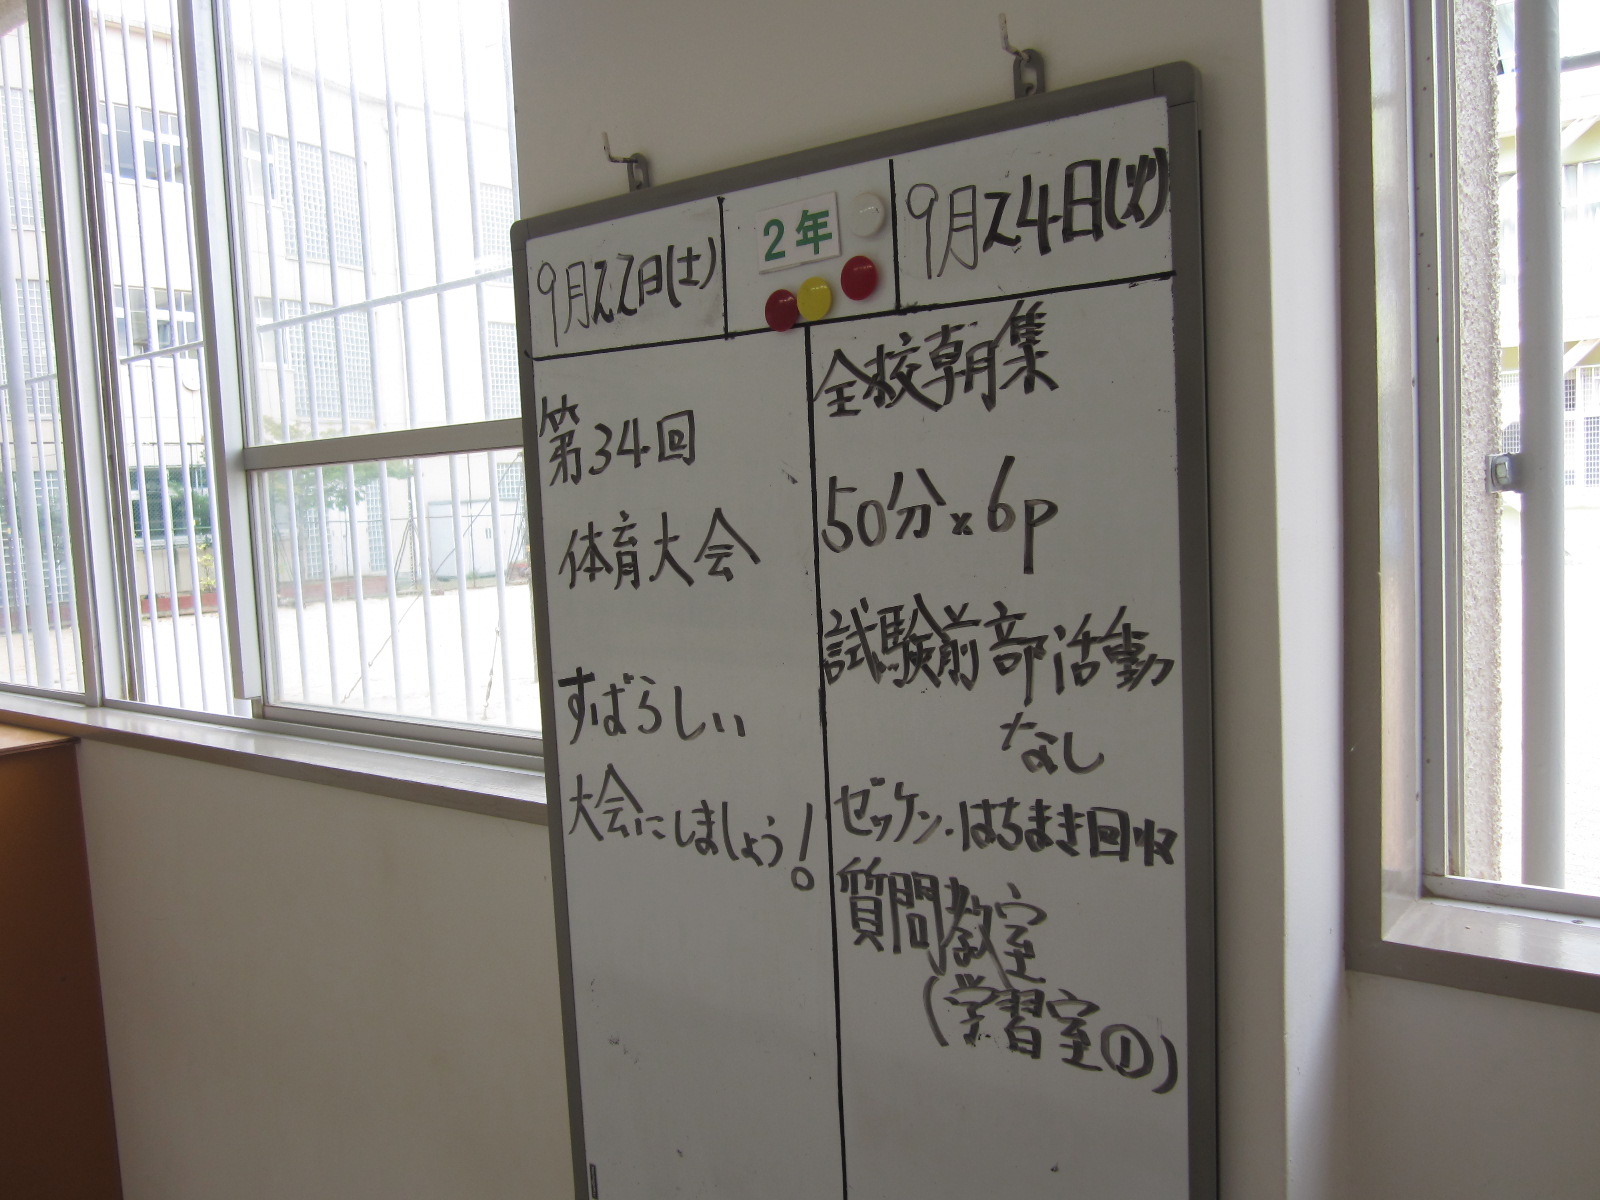 9月22日(土)
2年
9月24日(火)
第34回
体育大会
すばらしい
大会にしましょう!
全校朝集
50分×6p
試験前部活動
なし
ゼッケン・はちまき回収
質問教室
(学習室①)